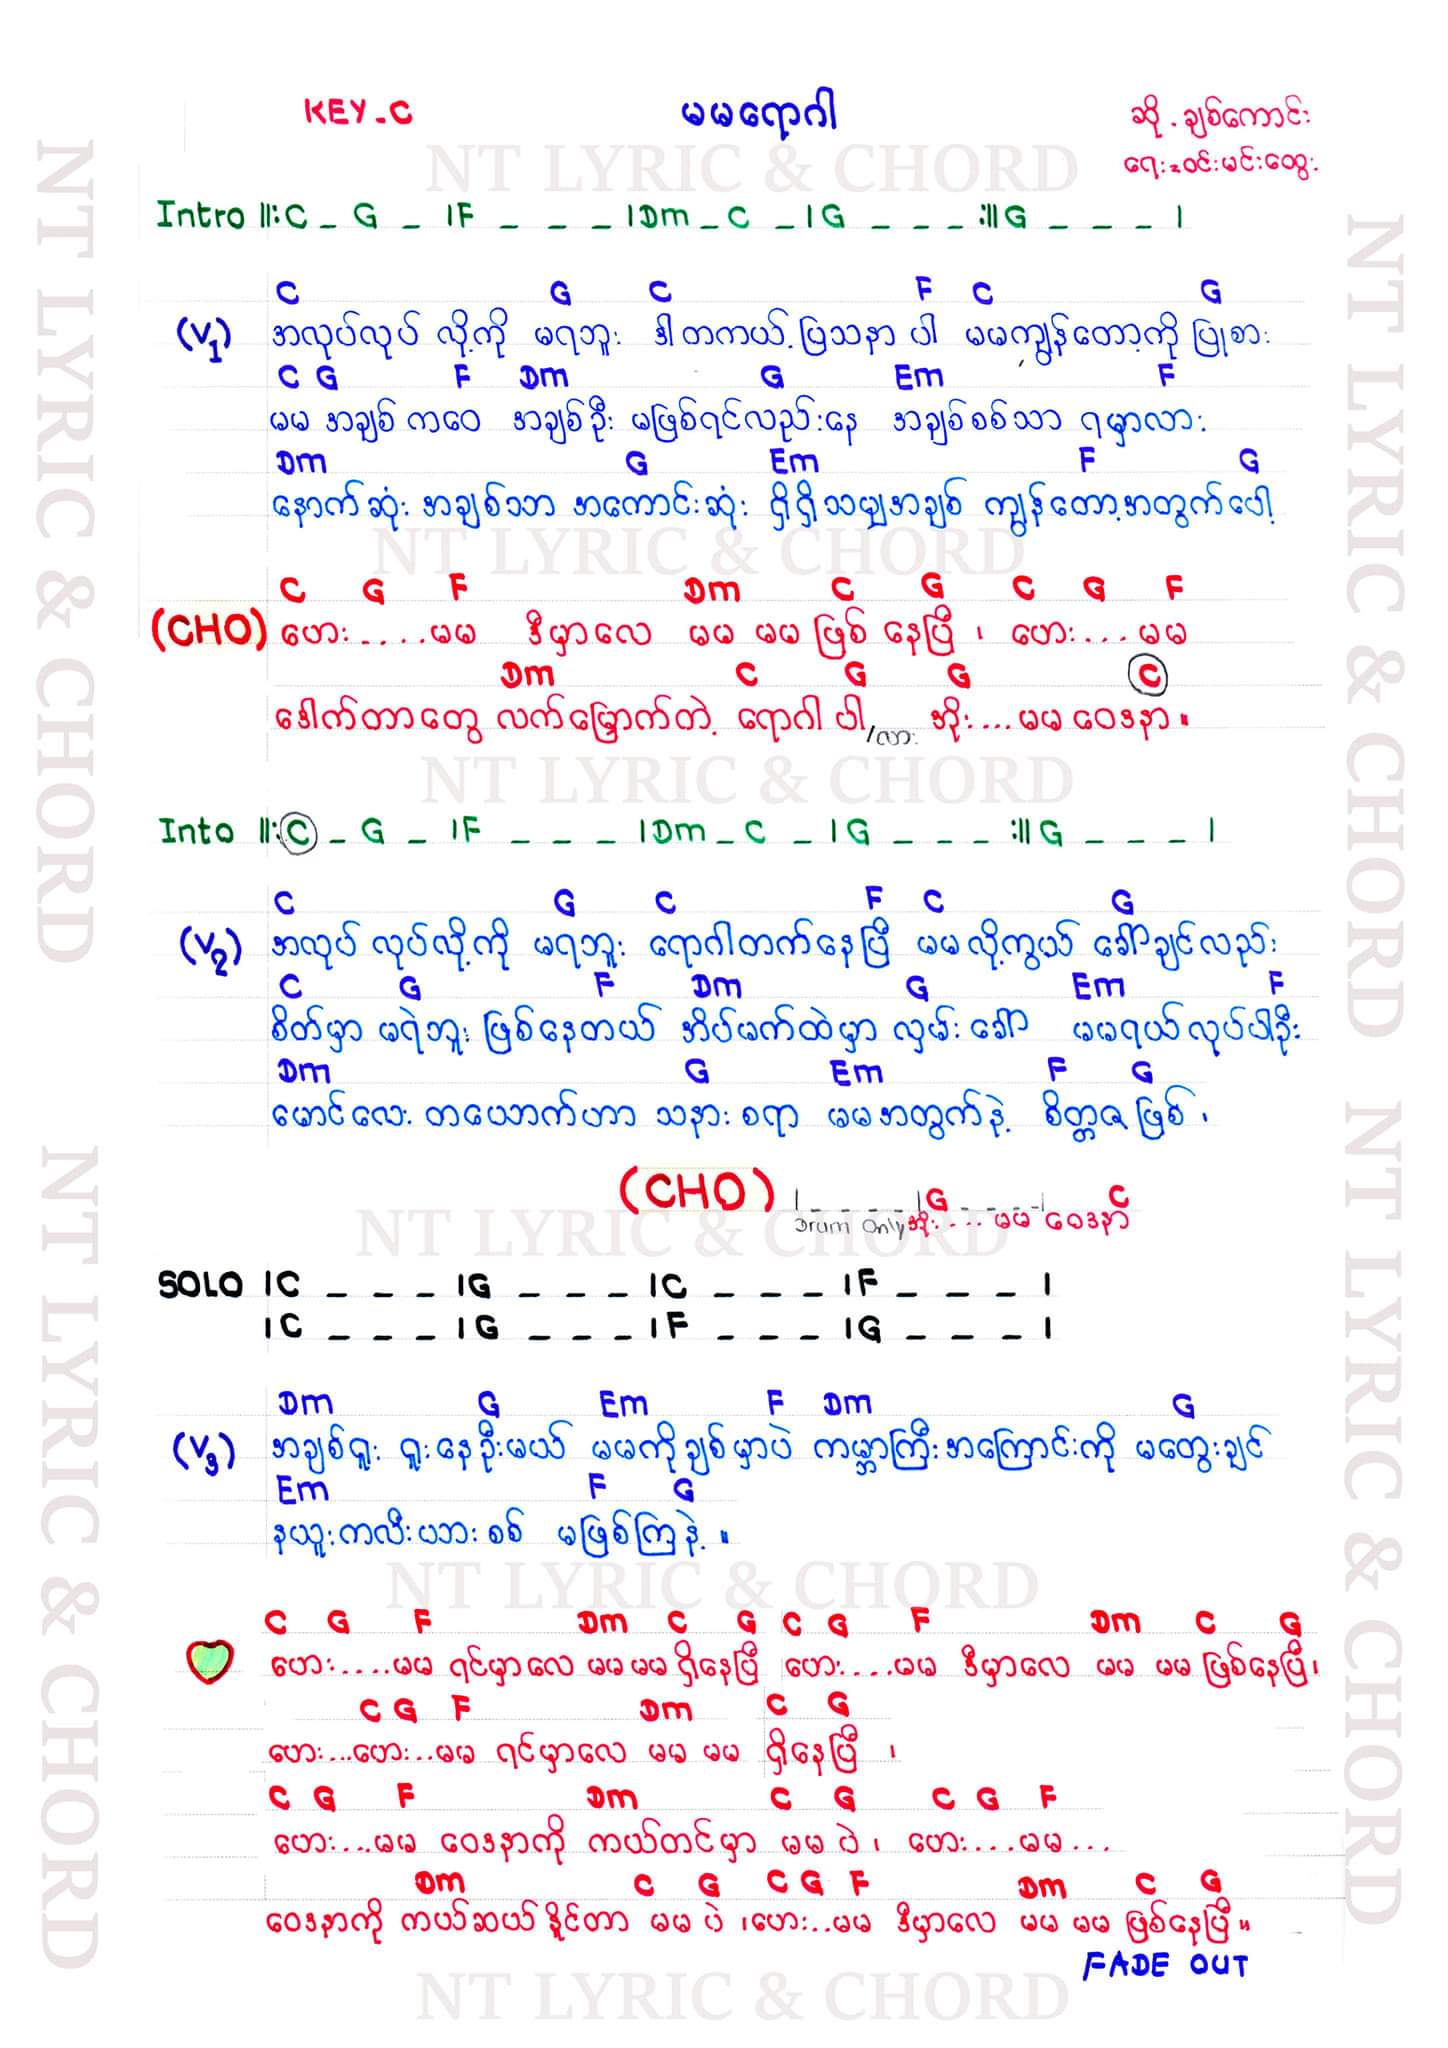 KEY-C မမရောဂါ ဆို . ချစ်ကောင်း
ရေး = ဝင်းမင်းထွေး
NT LYRIC & CHORD
Intro ||: C _ G _ | F _ _ _ | Dm _ C _ | G _ _ _ :|| G _ _ _ |
C G C F C G
(V1) အလုပ်လုပ် လို့ကို မရဘူး ဒါတကယ့် ပြသနာ ပါ မမကျွန်တော့်ကို ပြုစား
C G F Dm G Em F
မမ အချစ် ကဝေ အချစ်ဦး မဖြစ်ရင်လည်းနေ အချစ်စစ်သာ ရမှာလား
Dm G Em F G
နောက်ဆုံး အချစ်သာ အကောင်းဆုံး ရှိရှိသမျှအချစ် ကျွန်တော့်အတွက်ပေါ့
NT LYRIC & CHORD
C G F Dm C G C G F
(CHO) ဟေး .... မမ ဒီမှာလေ မမ မမ ဖြစ် နေပြီ ၊ ဟေး ... မမ
Dm C G G C
ဒေါက်တာတွေ လက်မြှောက်တဲ့ ရောဂါ ပါ /လား အိုး .... မမ ဝေဒနာ ။
NT LYRIC & CHORD
Into ||: C _ G _ | F _ _ _ | Dm _ C _ | G _ _ _ :|| G _ _ _ |
C G C F C G
(V2) အလုပ် လုပ်လို့ကို မရဘူး ရောဂါတက်နေပြီ မမလို့ကွယ် ခေါ်ချင်လည်း
C G F Dm G Em F
စိတ်မှာ မရဲဘူး ဖြစ်နေတယ် အိပ်မက်ထဲမှာ လှမ်းခေါ် မမရယ်လုပ်ပါဦး
Dm G Em F G
မောင်လေး တယောက်ဟာ သနားစရာ မမအတွက်နဲ့ စိတ္တဇ ဖြစ် ၊
(CHO) | _ _ _ _ | G _ _ _ | C
Drum Only အိုး .... မမ ဝေဒနာ
NT LYRIC & CHORD
SOLO | C _ _ _ | G _ _ _ | C _ _ _ | F _ _ _ |
| C _ _ _ | G _ _ _ | F _ _ _ | G _ _ _ |
Dm G Em F Dm G
(V3) အချစ်ရူး ရူးနေဦးမယ် မမကိုချစ်မှာပဲ ကမ္ဘာကြီးအကြောင်းကို မတွေးချင်
Em F G
နယူးကလီးယားစစ် မဖြစ်ကြနဲ့ ။
NT LYRIC & CHORD
C G F Dm C G C G F Dm C G
ဟေး .... မမ ရင်မှာလေ မမ မမ ရှိနေပြီ ဟေး .... မမ ဒီမှာလေ မမ မမ ဖြစ်နေပြီ ၊
C G F Dm C G
ဟေး ... ဟေး .. မမ ရင်မှာလေ မမ မမ ရှိနေပြီ ၊
C G F Dm C G C G F
ဟေး ... မမ ဝေဒနာကို ကယ်တင်မှာ မမ ပဲ ၊ ဟေး .... မမ ...
Dm C G C G F Dm C G
ဝေဒနာကို ကယ်ဆယ်နိုင်တာ မမ ပဲ ၊ ဟေး .. မမ ဒီမှာလေ မမ မမ ဖြစ်နေပြီ ။
FADE OUT
NT LYRIC & CHORD
NT LYRIC & CHORD
NT LYRIC & CHORD
NT LYRIC & CHORD
NT LYRIC & CHORD